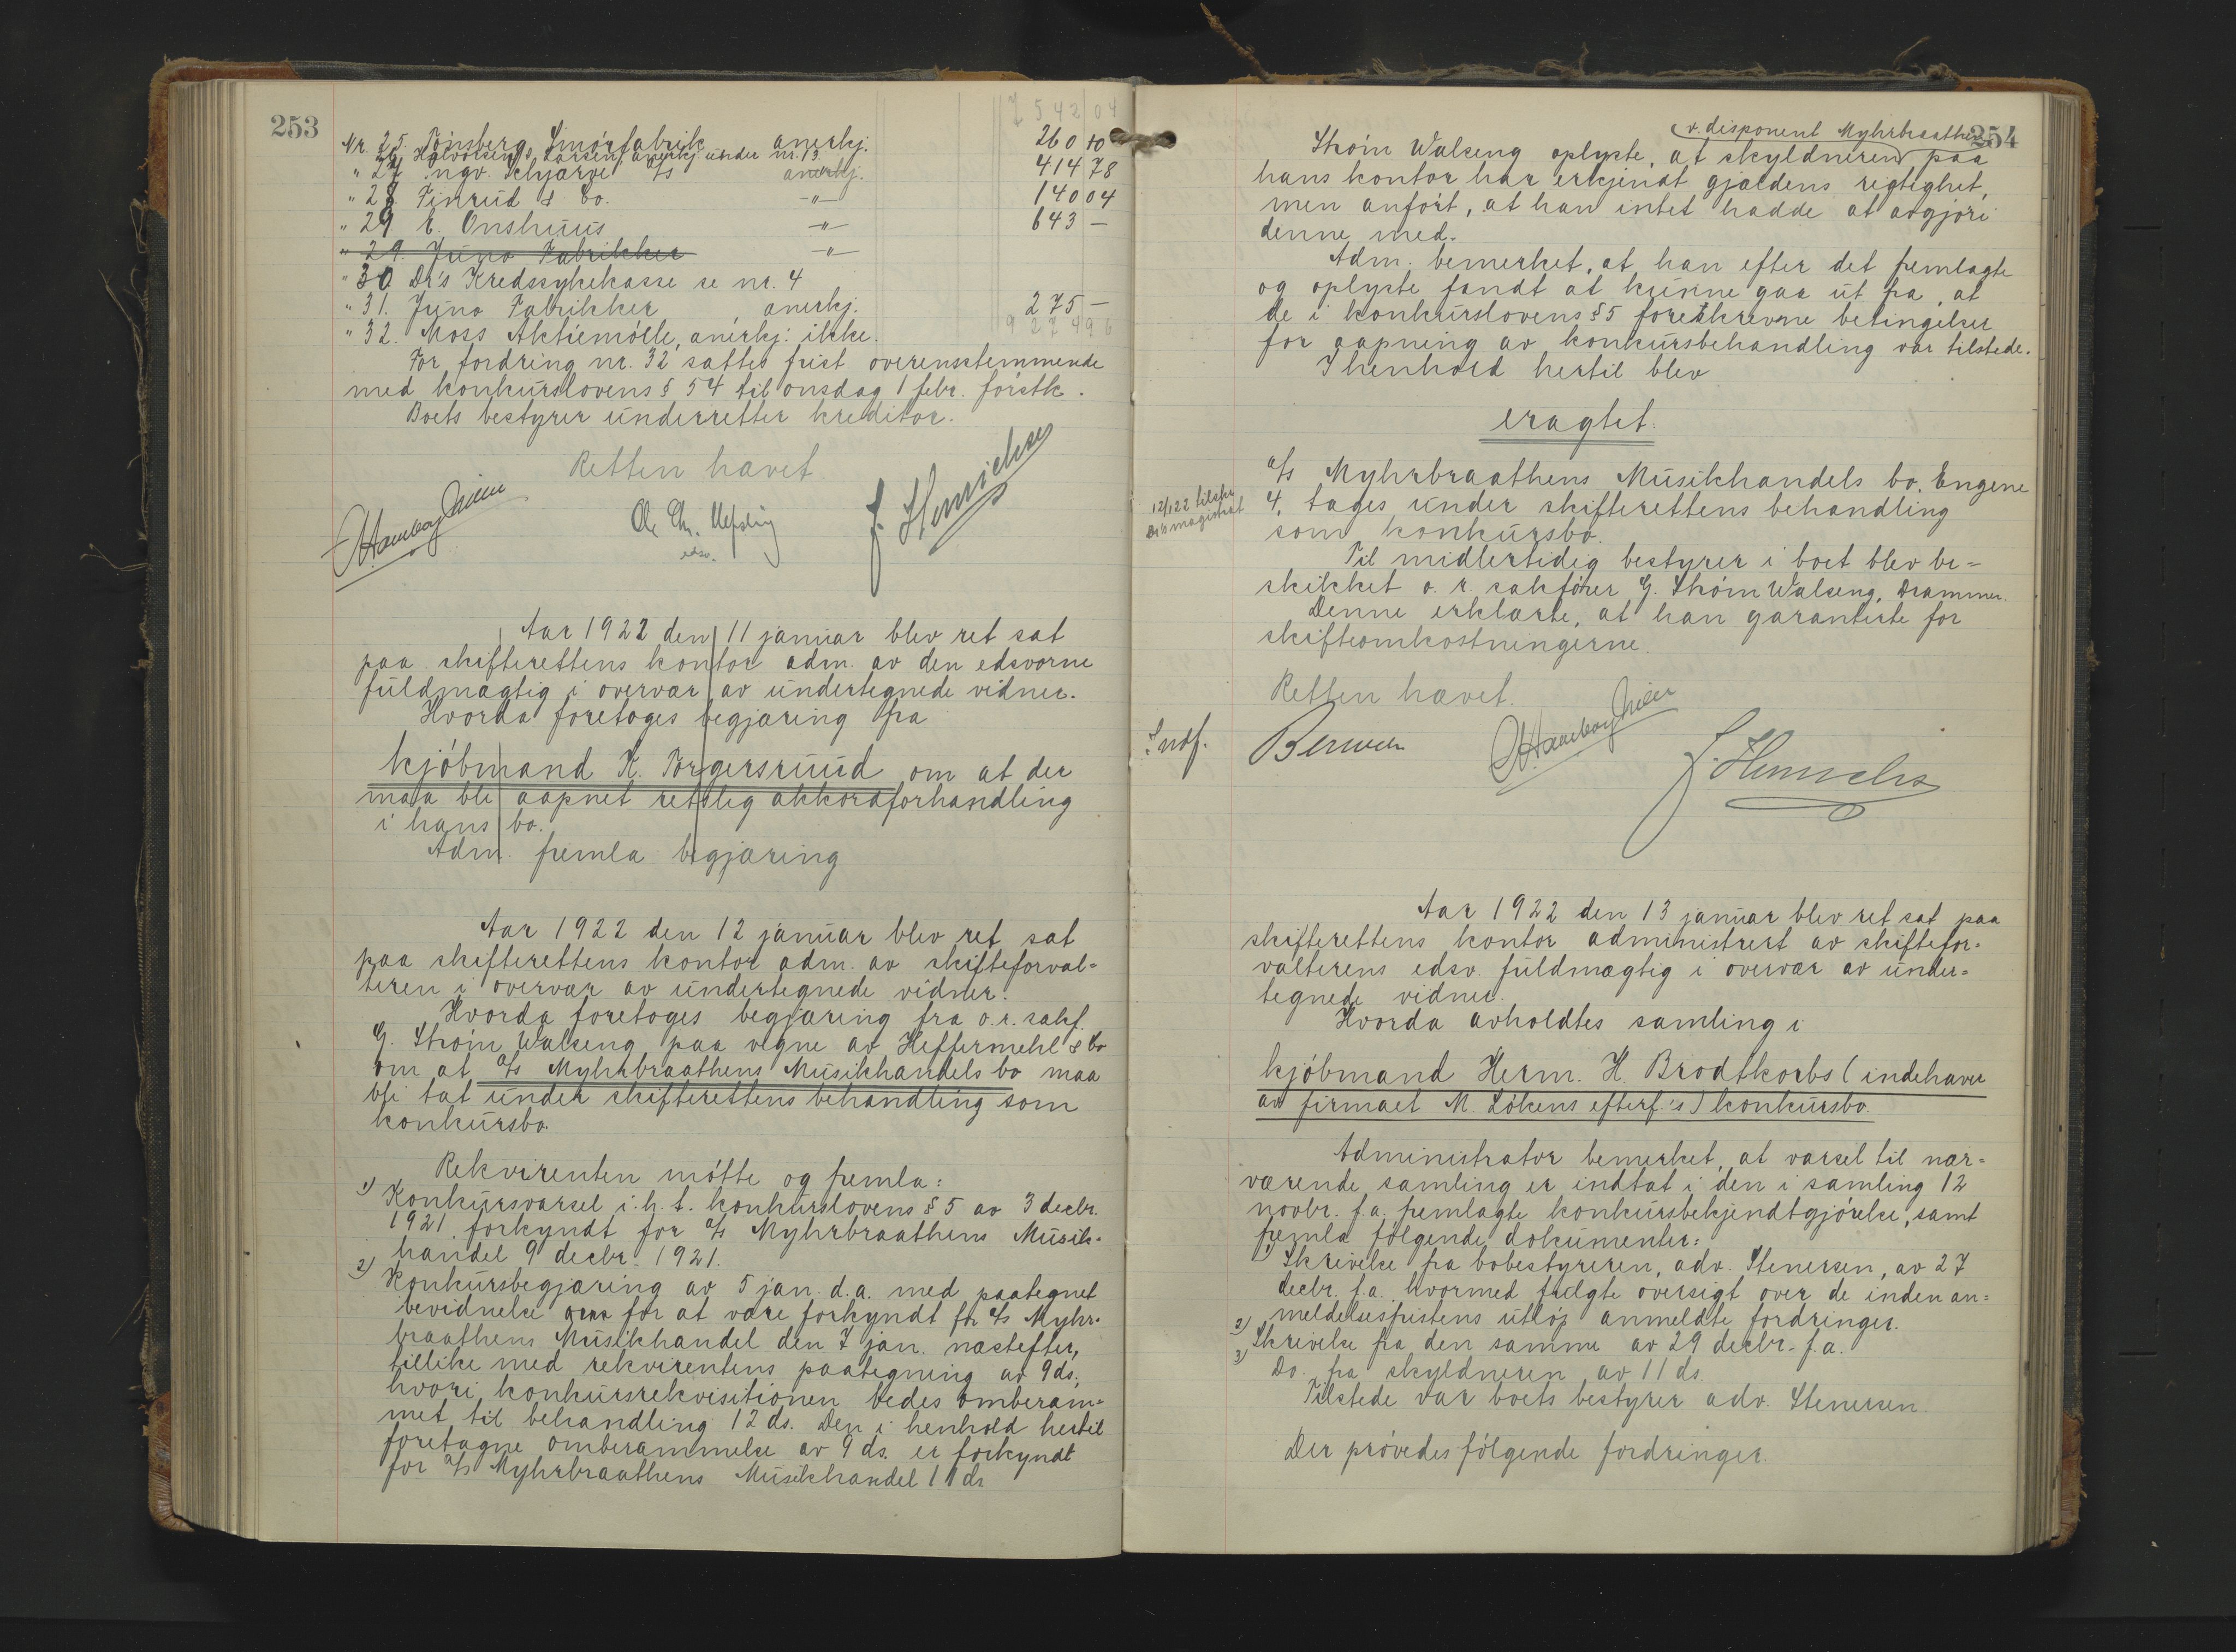 253
7 542 04
Nr. 25. Tönsberg Smörfabrik anerkj. 260 10
" 26 Halvorsen & Larsen, anerkj. under nr. 13.
" 27 Ingv. Schjarve a/s anerkj. 414 78
" 28. Finrud & Co. -"- 140 04
" 29. E. Onshuus -"- 643 -
" 29. Juno Fabrikker -"-
" 30 Dr's Kredssykekasse se nr. 4
" 31. Juno Fabrikker anerkj. 275 -
" 32. Moss Aktiemölle, anerkj. ikke. 9 274 96
For fordring nr. 32 sattes frist overensstemmende
med konkurslovens § 54 til onsdag 1 febr. förstk.
Boets bestyrer underretter kreditor.
Retten hævet
edsv.
J. Henrichsen
Aar 1922 den 11 januar blev ret sat
paa skifterettens kontor adm. av den edsvorne
fuldmægtig i overvær av undertegnede vidner.
Hvorda foretoges begjæring fra
kjöbmand K. Torgersruud om at der
maa bli aapnet retslig akkordforhandling
i hans bo.
Adm. fremla begjæring
Aar 1922 den 12 januar blev ret sat
paa skifterettens kontor adm. av skifteforval=
teren i overvær av undertegnede vidner.
Hvorda foretoges begjæring fra o.r. sakf.
G. Ström Walseng paa vegne av Heftermehl & Co
om at a/s Myhrbraathens Musikhandels bo maa
bli tat under skifterettens behandling som
konkursbo.
Rekvirenten mötte og fremla:
1) Konkursvarsel i.h.t. konkurslovens § 5 av 3 decbr.
1921 forkyndt for a/s Myhrbraathens Musik=
handel 9 decbr. 1921.
2) Konkursbegjæring av 5 jan. d.a. med paategnet
bevidnelse om for at være forkyndt for a/s Myhr=
braathens Musikhandel den 7 jan. næstefter,
tillike med rekvirentens paategning av 9 ds.,
hvori konkursrekvisitionen bedes omberam=
met til behandling 12 ds. Den i henhold hertil
foretagne omberammelse av 9 ds. er forkyndt
for a/s Myhrbraathens Musikhandel 11 ds.
254
v. disponent Myhrbraathen
Ström Walseng oplyste, at skyldneren paa
hans kontor har erkjendt gjældens rigtighet,
men anfört, at han intet hadde at avgjöre
denne med.
Adm. bemerket, at han efter det fremlagte
og oplyste fandt at kunne gaa ut fra, at
de i konkurslovens § 5 foreskrevne betingelser
for aapning av konkursbehandling var tilstede.
I henhold hertil blev
eragtet:
a/s Myhrbraathens Musikhandels bo, Engene
4, tages under skifterettens behandling
som konkursbo.
12/1 22 tilskr.
Dr's magistrat
Til midlertidig bestyrer i boet blev be=
skikket o.r. sakförer G. Ström Walseng, Drammen.
Denne erklærte, at han garanterte for
skifteomkostningerne.
Retten hævet.
Indf.
J. Henrichs
Aar 1922 den 13 januar blev ret sat paa
skifterettens kontor administrert av skiftefor=
valterens edsv. fuldmægtig i overvær av under=
tegnede vidner.
Hvorda avholdtes samling i
kjöbmand Herm. H. Brodtkorbs (indehaver
av firmaet M. Lökens efterf.'s) konkursbo.
Administrator bemerket, at varsel til nær=
værende samling er indtat i den i samling 12
novbr. f.a. fremlagte konkursbekjendtgjörelse, samt
fremla fölgende dokumenter:
1) Skrivelse fra bobestyreren, adv. Stenersen, av 27
decbr. f.a. hvormed fulgte oversigt over de inden an=
meldelsesfristens utlöp anmeldte fordringer.
2) Skrivelse fra den samme av 29 decbr. f.a.
3) Do. fra skyldneren av 11 ds.
Tilstede var boets bestyrer adv. Stenersen.
Der prövedes fölgende fordringer.